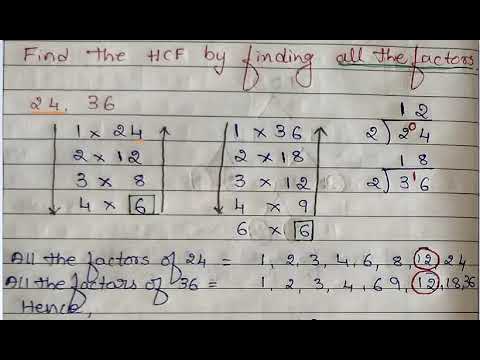 Find the HCF by finding all the factors
24, 36
1 × 24
2 × 12
3 × 8
4 × 6
1 × 36
2 × 18
3 × 12
4 × 9
6 × 6
12
2)2⁰4
18
2)3¹6
All the factors of 24 = 1, 2, 3, 4, 6, 8, 12, 24
All the factors of 36 = 1, 2, 3, 4, 6 9, 12, 18, 36
Hence,